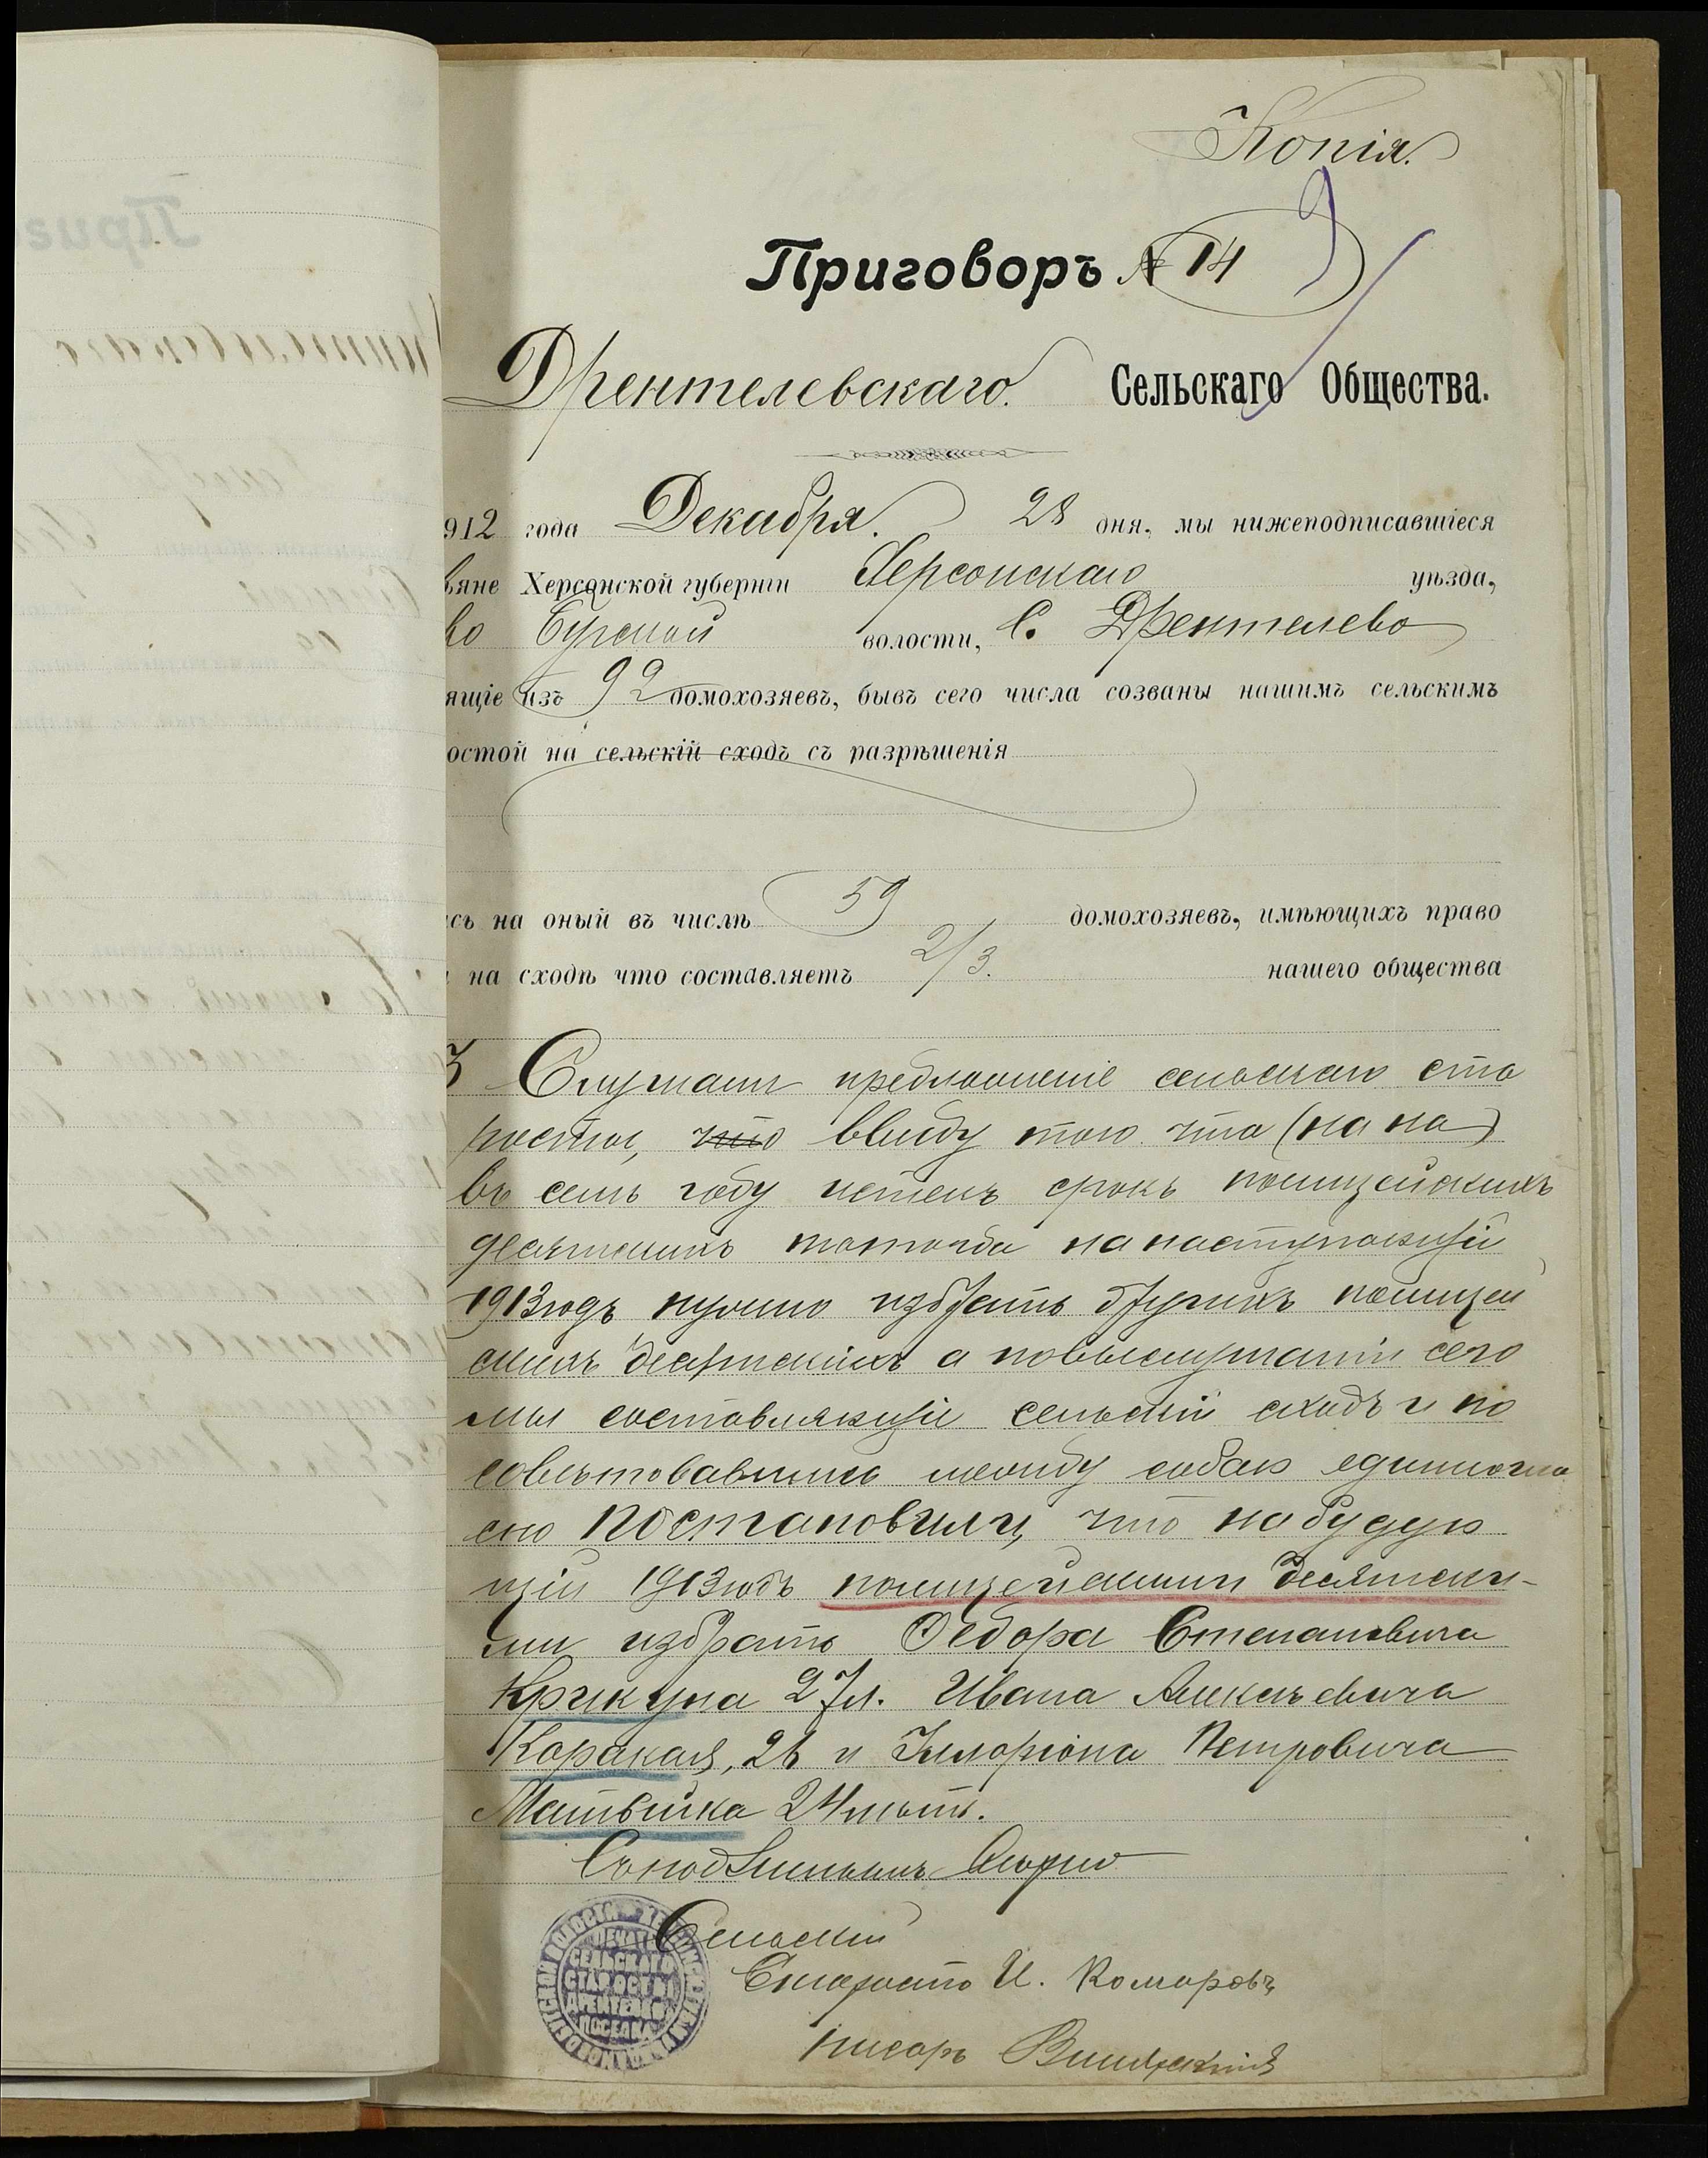 Копія.
Приговоръ № 14
Дрентелевскаго. Сельскаго Общества.
912 года Декабря. 28 дня, мы нижеподписавшіеся
ьяне Херсонской губерніи Херсонскаго уѣзда,
во Бугской волости, с. Дрентелево
ящіе изъ 92 домохозяевъ, бывъ сего числа созваны нашимъ сельскимъ
остой на сельскій сходъ съ разрѣшенія
сь на оный въ числѣ 59 домохозяевъ, имѣющихъ право
на сходѣ что составляетъ 2/3. нашего общества
Слушали предложеніе сельскаго ста
росты, что ввиду того что (на на)
въ семъ году истекъ срокъ полицейскихъ
десятскихъ то на наступающій
1913 годъ нужно избрать другихъ полицей
скихъ десятскихъ а по выслушаніи сего
мы составляющіе сельскій сходъ и по
совѣтовавшись между собою единогла
сно постановили, что на будую
щій 1913 годъ полицейскими десятски-
ми избрать Ѳедора Степановича
Крикуна 27 л. Ивана Алексѣевича
Каракая, 26 и Илларіона Петровича
Матвѣйка 24 лѣтъ.
Съ подлиннымъ вѣрно
Сельскій
Староста И. Комаровъ
писарь
ПЕЧАТЬ
СЕЛЬСКАГО
СТАРОСТЫ
ДРЕНТЕЛЕВ
ПОСЕЛКА